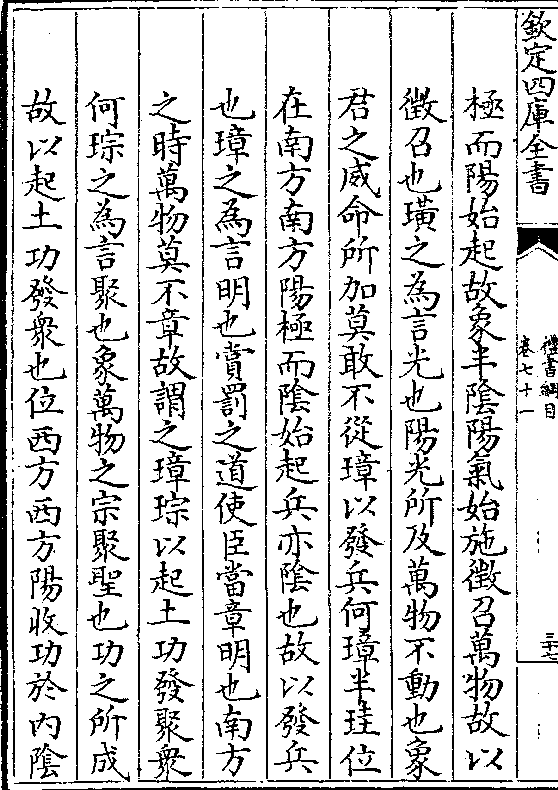 欽定四庫全書
禮書綱目
卷七十一
三十七
極而陽始起故象半陰陽氣始施徵召萬物故以
徵召也璜之為言光也陽光所及萬物不動也象
君之威命所加莫敢不從璋以發兵何璋半珪位
在南方南方陽極而陰始起兵亦陰也故以發兵
也璋之為言明也賞罰之道使臣當章明也南方
之時萬物莫不章故謂之璋琮以起土功發聚衆
何琮之為言聚也象萬物之宗聚聖也功之所成
故以起土功發衆也位西方西方陽收功於内陰